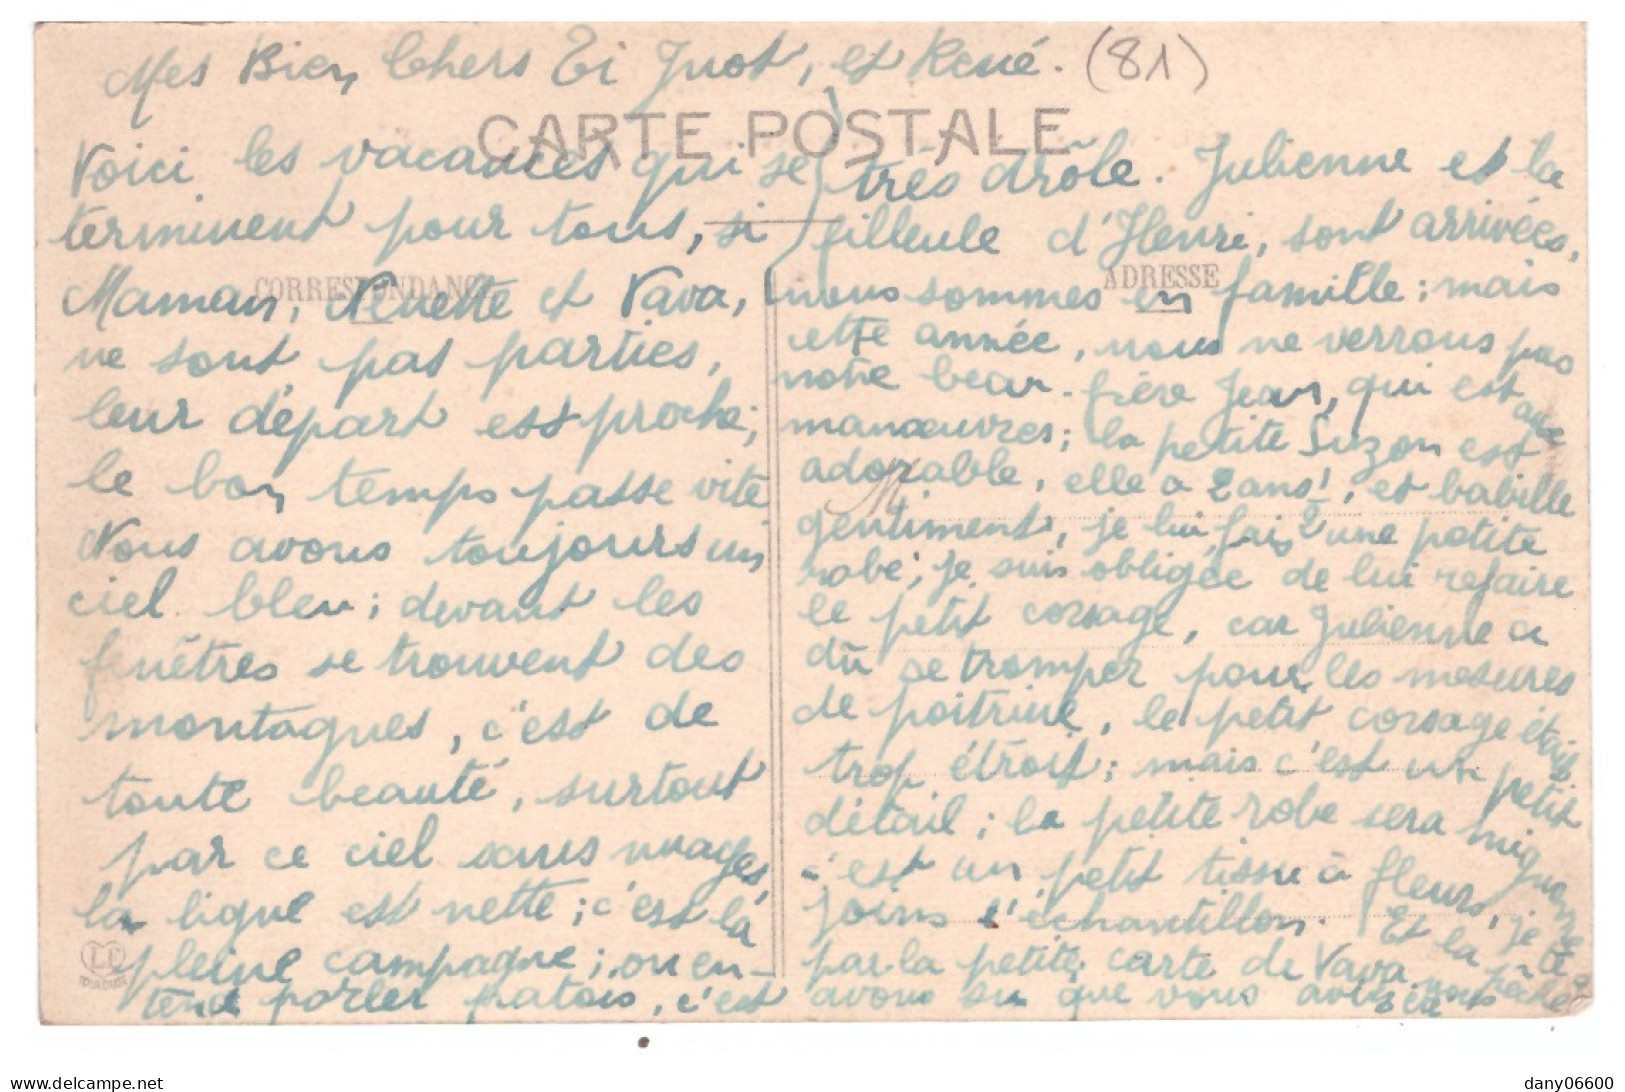 Mes Bien Chers Ti Juot, et René. (81)
CARTE POSTALE
Voici les vacances qui se
terminent pour tous, si
CORRESPONDANCE
Maman, Nenette et Vava,
ne sont pas parties,
leur départ est proche;
le bon temps passe vite
Nous avons toujours un
ciel bleu; devant les
fenêtres se trouvent des
montagnes, c'est de
toute beauté, surtout
par ce ciel sans nuages,
la ligne est nette; c'est la
pleine campagne; on en-
tend parler patois, c'est
LF
TOULOUSE
très drôle. Julienne et la
filleule d'Henri, sont arrivées,
ADRESSE
nous sommes en famille; mais
cette année, nous ne verrons pas
notre beau-frère Jean, qui est aux
manœuvres; la petite Suzon est
adorable, elle a 2 ans 1/2, et babille
M
gentiment, je lui fais une petite
robe; je suis obligée de lui refaire
le petit corsage, car Julienne a
dû se tromper pour les mesures
de poitrine, le petit corsage était
trop étroit; mais c'est un petit
détail; la petite robe sera mignonne
c'est un petit tissu à fleurs, je te
joins l'échantillon. Et la pêche?
par la petite carte de Vava nous
avons su que vous aviez eu
dany06600
www.delcampe.net